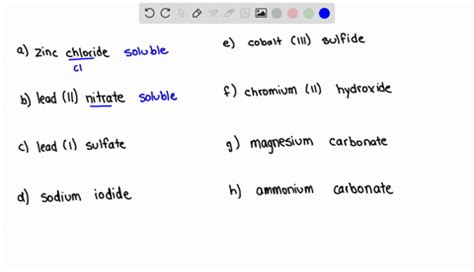 a) zinc chloride soluble
cl
b) lead (II) nitrate soluble
c) lead (I) sulfate
d) sodium iodide
e) cobalt (III) sulfide
f) chromium (II) hydroxide
g) magnesium carbonate
h) ammonium carbonate